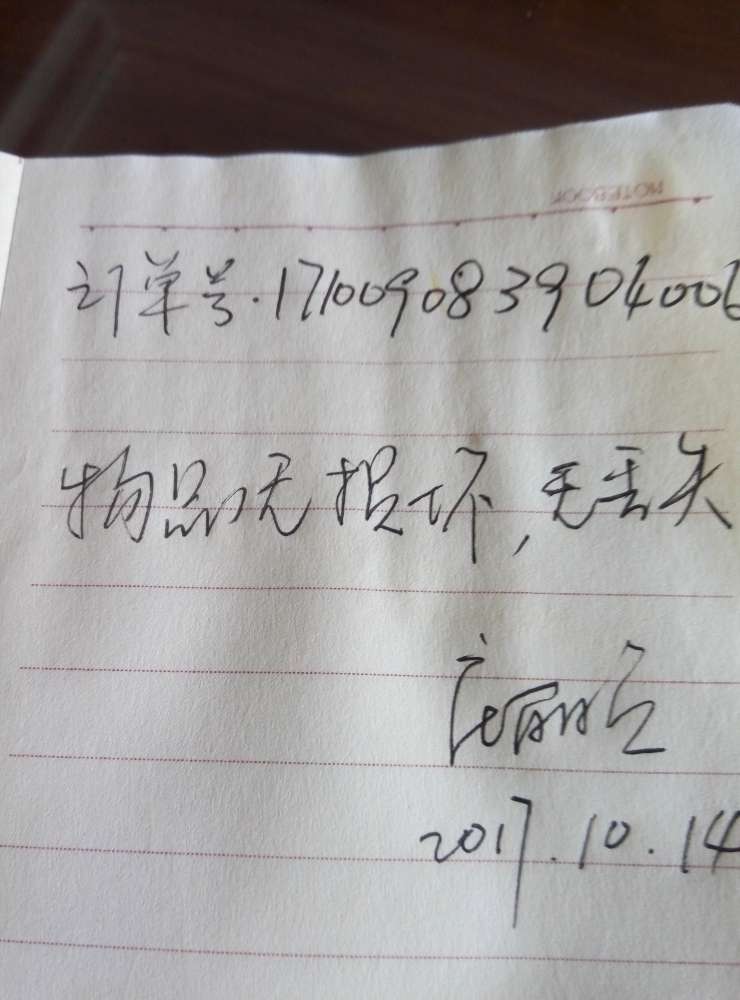 NOTEBOOK
订单号.171009083904006
物品无损坏,无丢失
2017.10.14